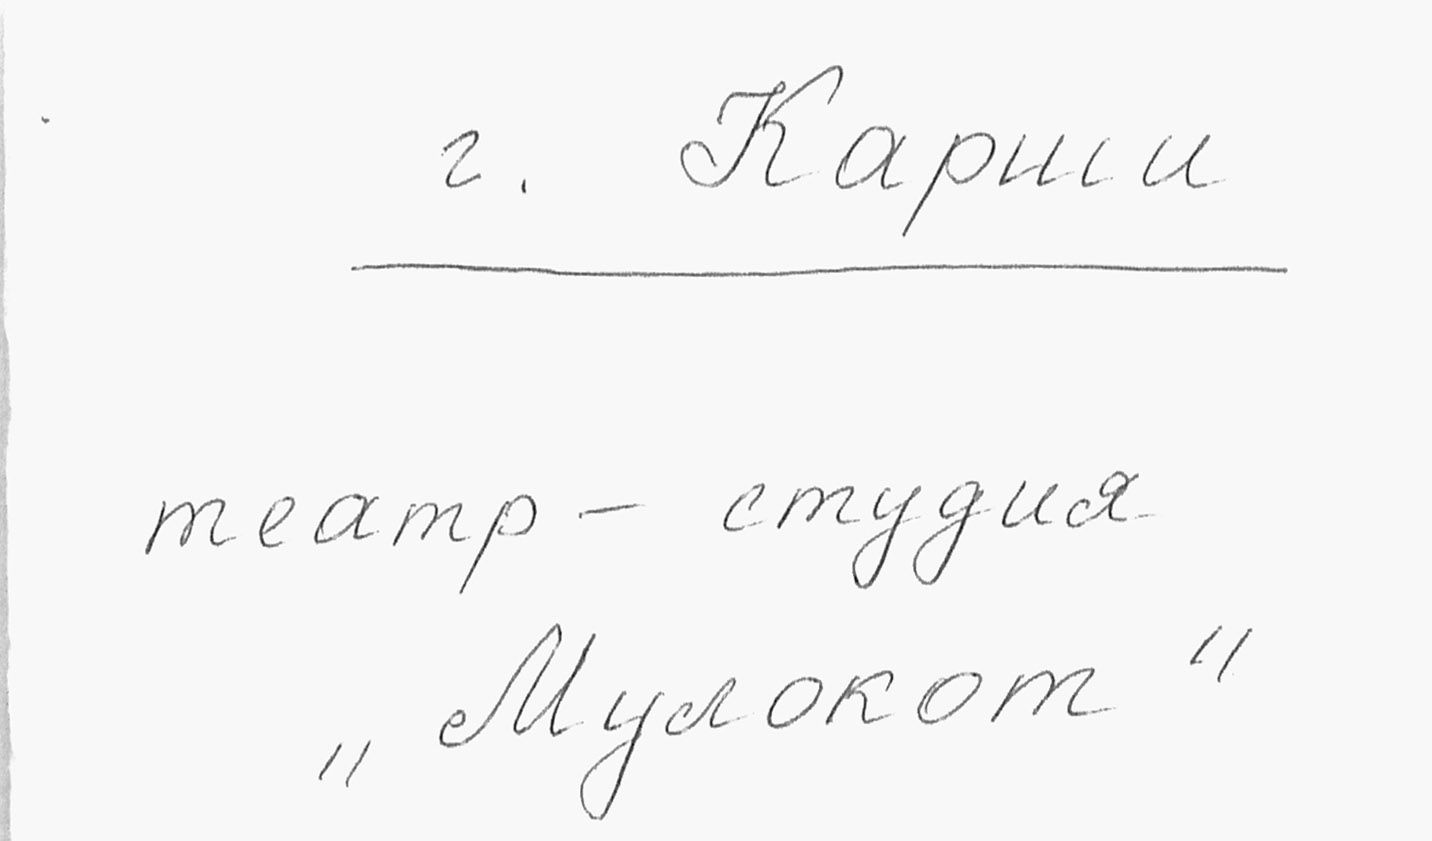 г. Карши
театр - студия
„Мулокот"